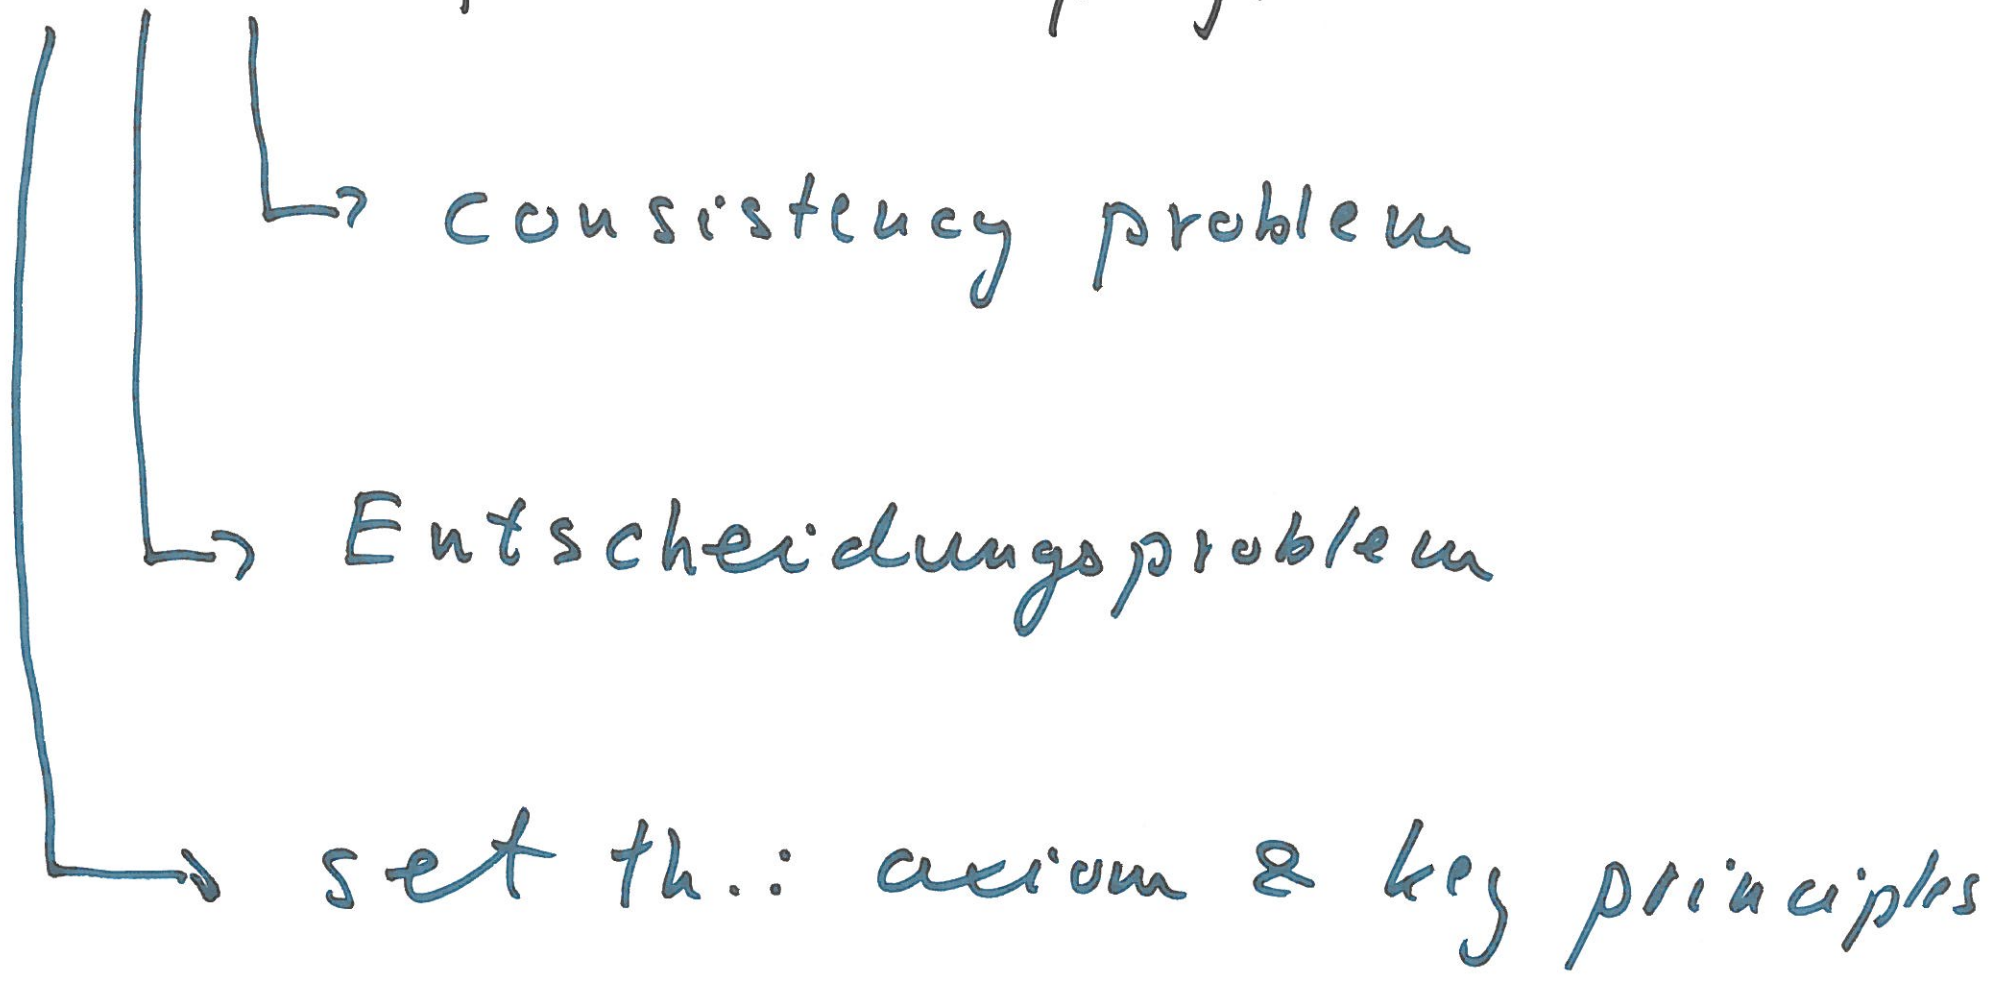 consistency problem
Entscheidungsproblem
set th.: axiom & key principles